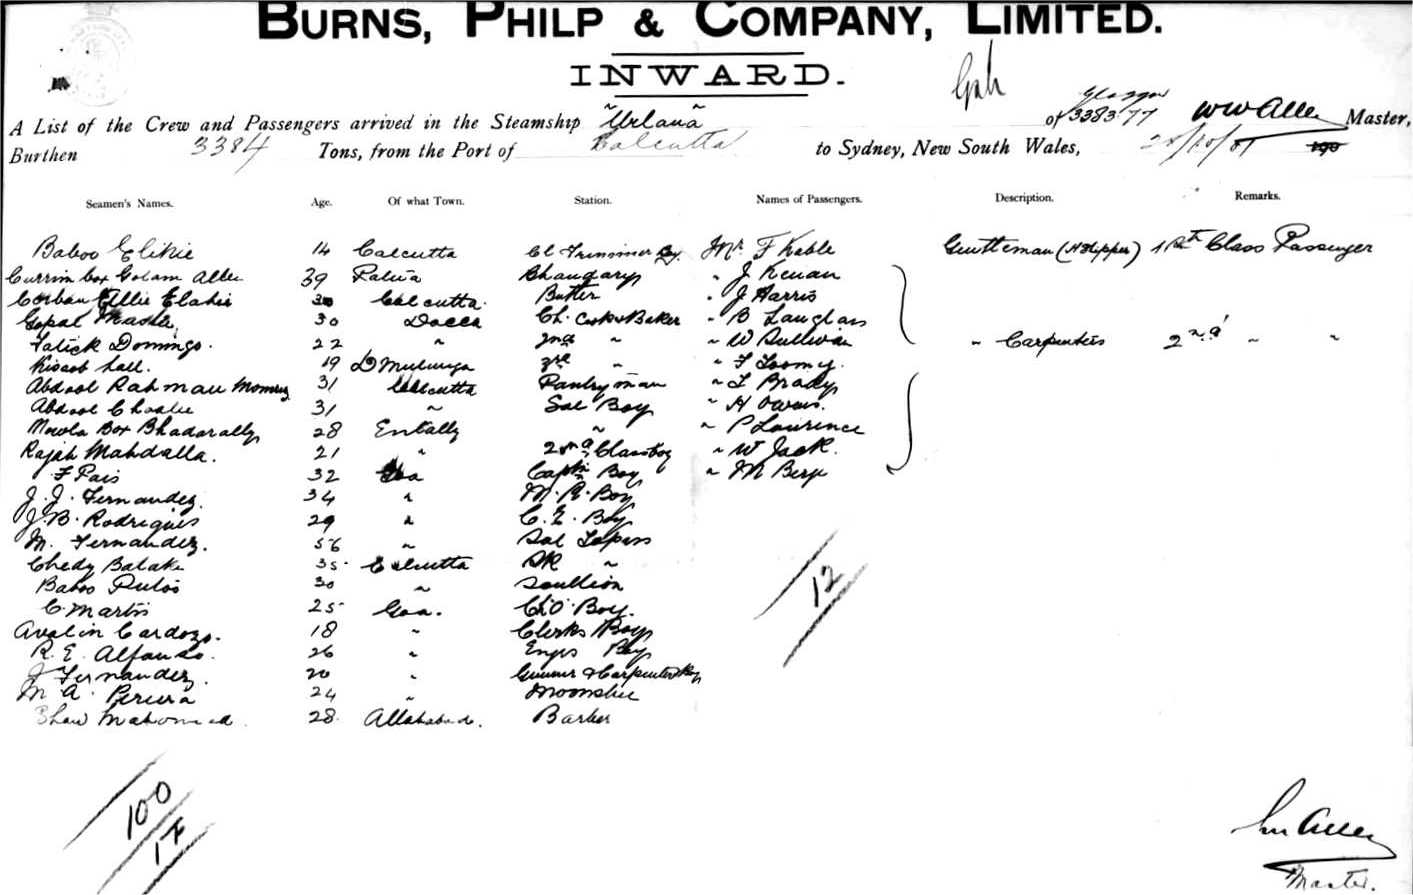 BURNS, PHILP & COMPANY, LIMITED.
INWARD.
A List of the Crew and Passengers arrived in the Steamship "Urlana" of Glasgow 3383 77 WW Allen Master,
Burthen 3384 Tons, from the Port of Calcutta to Sydney, New South Wales, 190
Seamen's Names. Age. Of what Town. Station. Names of Passengers. Description. Remarks.
Baboo 14 Calcutta Cl Trimmer Boy Mr F Kable Gentleman 1st Class Passenger
Currim box Golam Allee 39 Bhandary " J Kenan
30 Calcutta Butler " J Harris
Gopal 30 Dacca Ch. Cook & Baker " B Langlan
Domingo. 22 " 2nd " " W Sullivan " Carpenters 2nd " "
19 3rd " " F Toomy.
Abdool Rahman 31 Calcutta Pantryman " T Brady
Abdool 31 " Sal Boy " H Owens.
Mowla Box 28 Entally " " P Laurence
Rajah Mahdalla. 21 " 2nd Class Boy " W Jack.
F Pais 32 Goa Captn Boy " M Berge
J. J. Fernandez. 34 " M. R. Boy
J. B. Rodrigues 29 " C. E. Boy
M. Fernandez. 56 " Sal
Chedy 35 Calcutta "
Baboo 30 " Scullion
C. Martis 25 Goa. Ch. O. Boy.
Avalin Cardozo. 18 " Clerks Boy
R. E. Alfanso. 26 " Engrs Boy
J Fernandez. 20 " Gunner & Carpenters Boy
M. A. Pereira 24 " Moonshee
Shaw Mahomed. 28 Allahabad. Barber
12
100
17
Allen
Master.